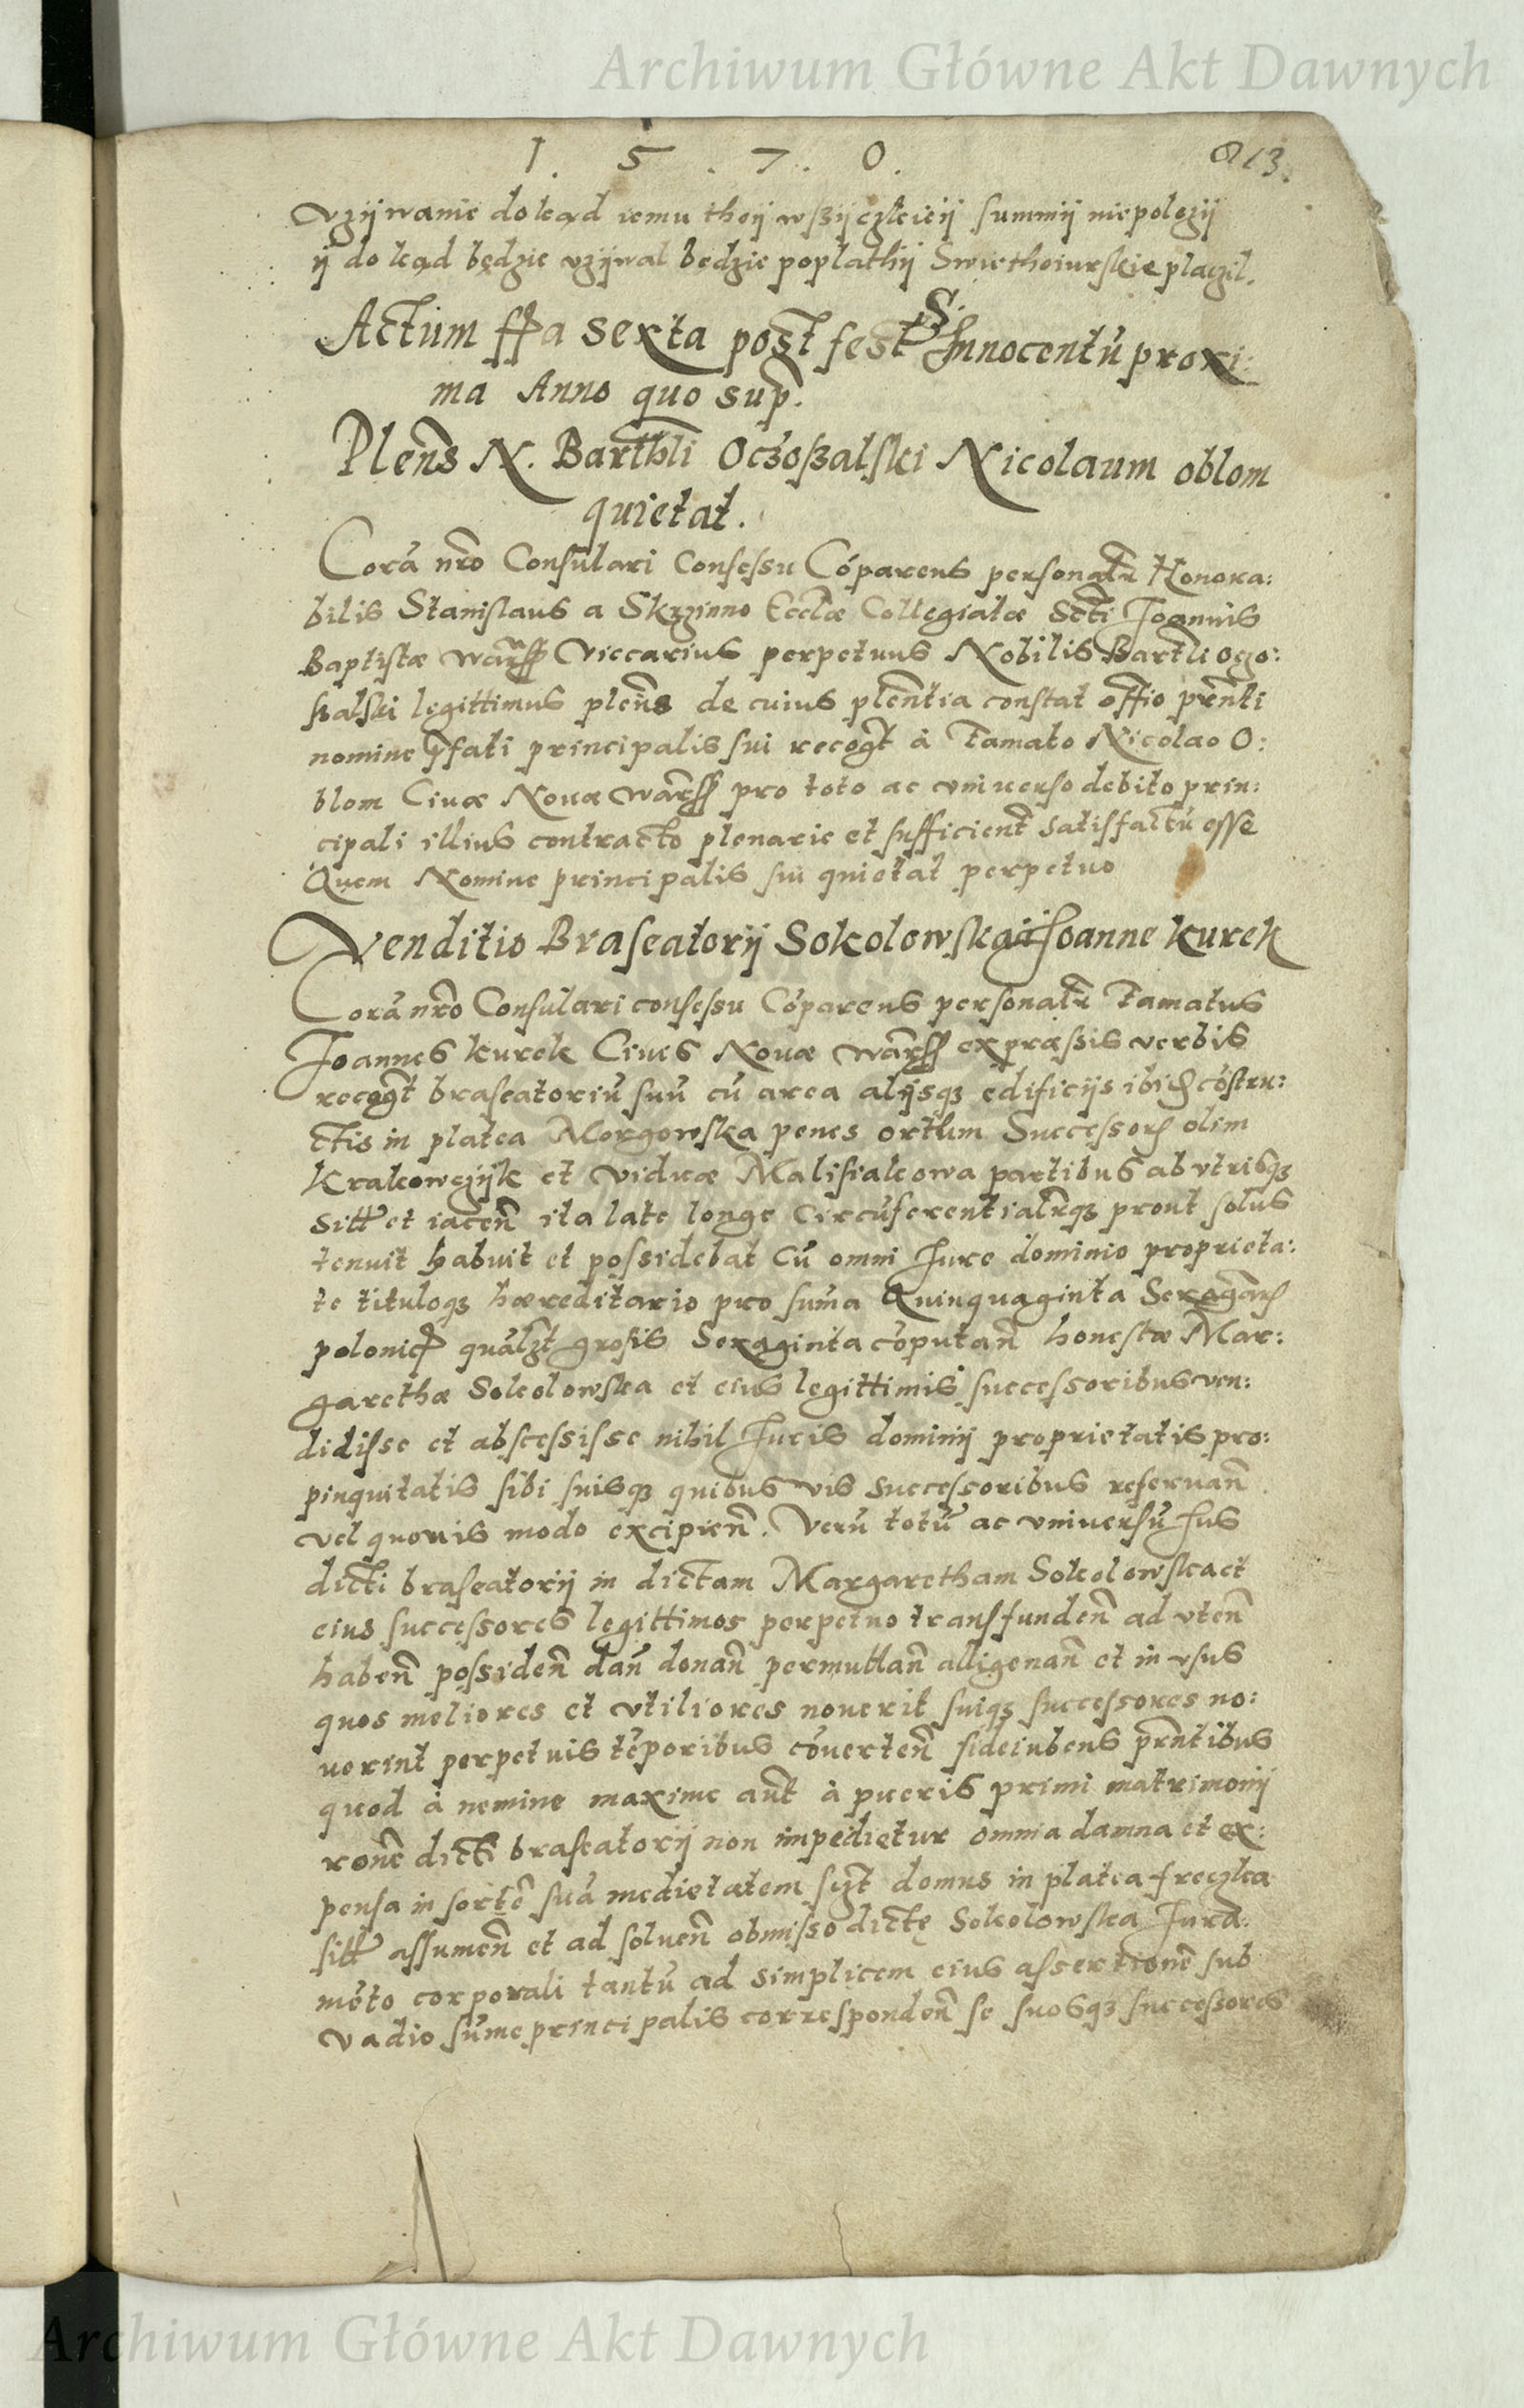 Archiwum Główne Akt Dawnych
1. 5. 7. 0. 813.
vzÿwanie dokąd iemu theÿ wszÿczkieiÿ summÿ niepolozÿ
ÿ dokąd będzie vzÿwal bedzie poplathÿ Swiethoiurskie placzil.
Actum ffa sexta post fest S. Innocentũ proxi:
ma Anno quo sup.
Plens N. Barthli Oczoßalski Nicolaum oblom
quietat.
Corã nro Consulari Consessu Cõparens personalr Honora:
bilis Stanislaus a Skrzinno Ecclæ Collegiatæ Scti Joannis
Baptistæ Warss Viccarius perpetuus Nobilis Bartli Ozo:
ßalski legittimus plens de cuius plentia constat offio prenti
nomine pfati principalis sui recogt à famato Nicolao O:
blom Ciuæ Nouæ Warss pro toto ac vniuerso debito prin:
cipali illius contracto plenarie et sufficient satisfactũ esse
Quem Nomine principalis sui quietat perpetuo
Venditio Braseatorij Sokolowska à Joanne Kurek
Corã nro Consulari consessu Cõparens personalr famatus
Joannes Kurek Ciuis Nouæ Warss expræssis verbis
recogt braseatoriũ suũ cũ area alijsqz edificijs ibid cõstru:
ctis in platea Morgowska penes ortum Successor olim
Krakowczÿk et viduæ Malisiakowa partibus ab vtrisqz
sitt et iacen ita late longe Circũferentialrqz prout solus
tenuit habuit et possidebat Cũ omni Jure dominio proprieta:
te tituloqz hæreditario pro suma Quinquaginta Sexagenar
polonic qualzt grosis Sexaginta cõputan honestæ Mar:
garethæ Sokolowska et eius legittimis successoribus ven:
didisse et abscessisse nihil Iuris dominij proprietatis pro:
pinquitatis sibi suisqz quibus vis successoribus reseruan
vel quouis modo excipien. Verũ totũ ac vniuersũ Ius
dicti braseatorij in dictam Margaretham Sokolowska et
eius successores legittimos perpetuo transfunden ad vten
haben possiden dan donan permuttan alligenan et in vsus
quos meliores et vtiliores nouerit suiqz successores no:
uerint perpetuis tẽporibus cõuerten fideiubens prentibus
quod à nemine maxime aut à pueris primi matrimonij
rone dicti braseatorij non impedietur omnia damna et ex:
pensa in sortẽ suã medietatem szt domus in platea freczka
sitt assumen et ad soluen obmisso dictę Sokolowska Iura:
mẽto corporali tantũ ad simplicem eius assertionẽ sub
vadio sũme principalis corresponden se suosqz successores
Archiwum Główne Akt Dawnych